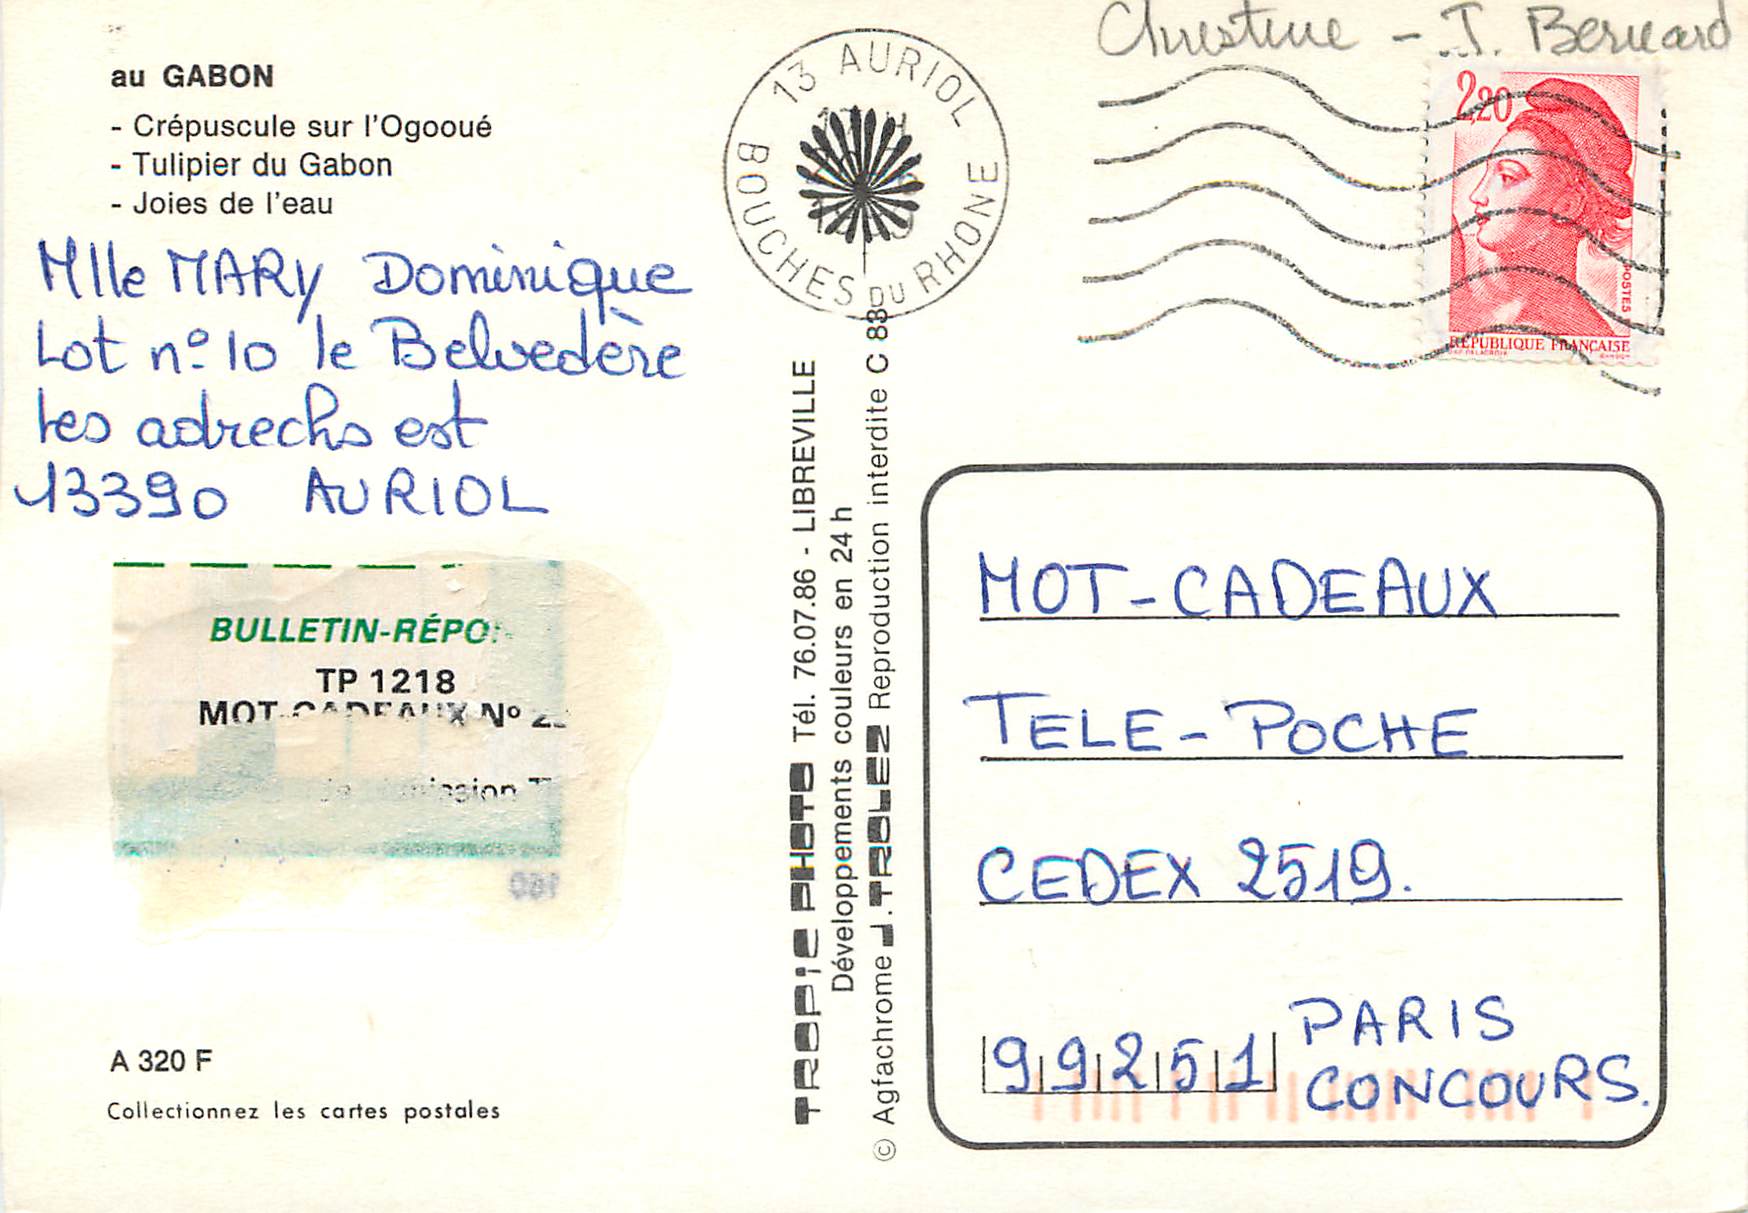 Christine - J. Bernard
au GABON
- Crépuscule sur l'Ogooué
- Tulipier du Gabon
- Joies de l'eau
Mlle MARY Dominique
Lot nº 10 le Belvedère
les adrechs est
13390 AURIOL
BULLETIN-RÉPO
TP 1218
MOT-CADEAUX Nº 2
mission
A 320 F
Collectionnez les cartes postales
13 AURIOL
BOUCHES DU RHONE
2,20
POSTES
RÉPUBLIQUE FRANÇAISE
TROPIC PHOTO Tél. 76.07.86 - LIBREVILLE
Développements couleurs en 24 h
© Agfachrome J. TROLEZ Reproduction interdite C 88
MOT-CADEAUX
TELE-POCHE
CEDEX 2519.
99251 PARIS
CONCOURS.